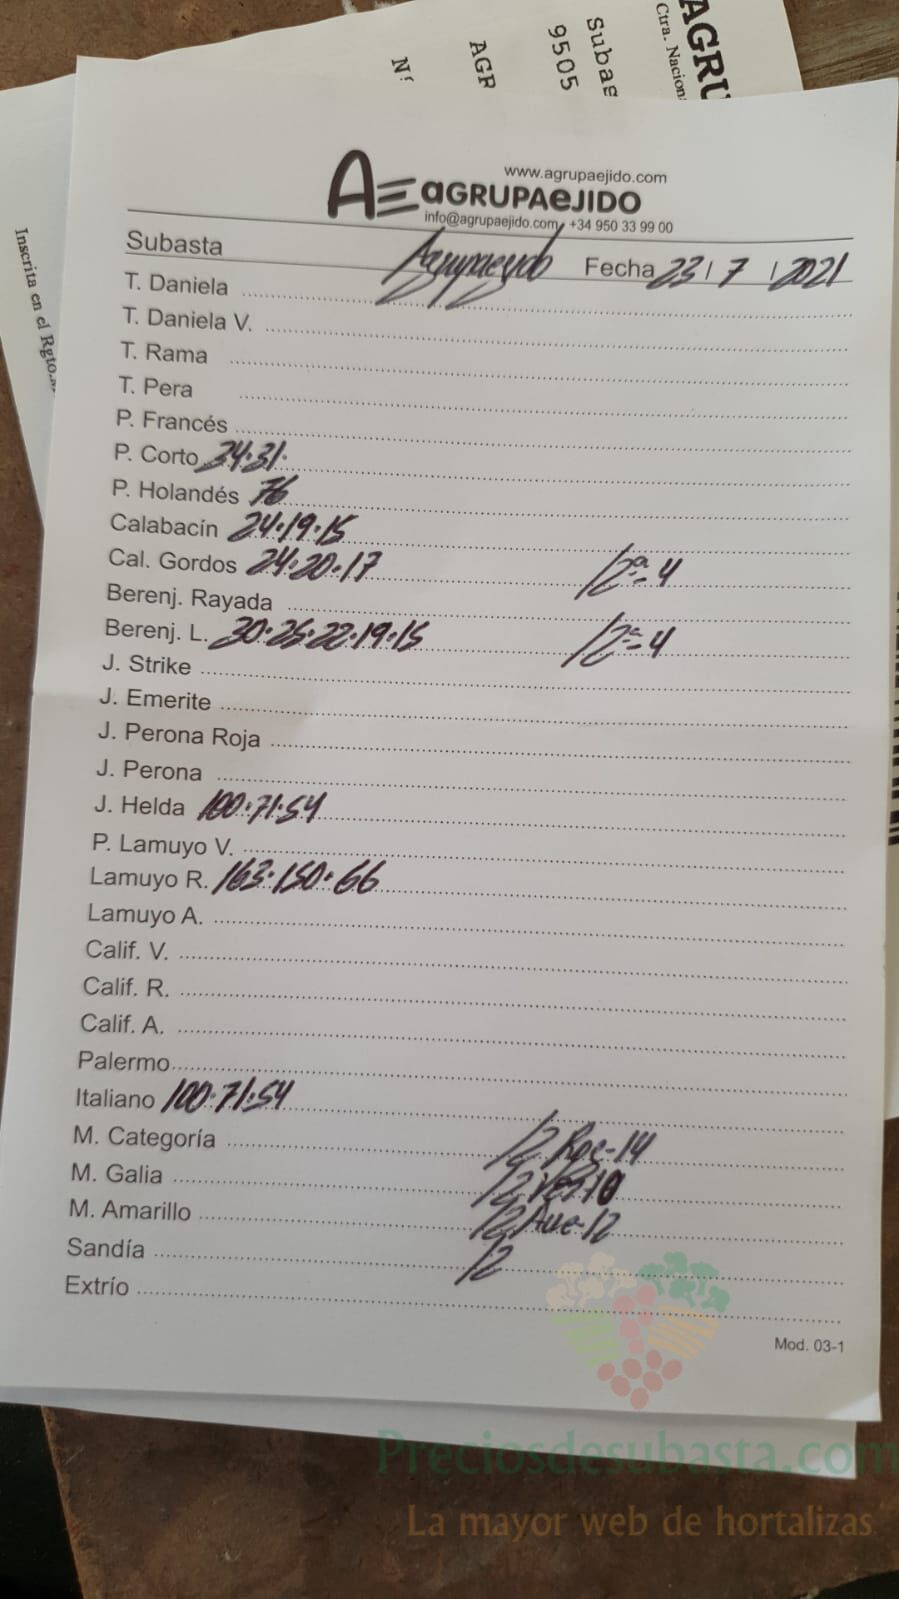 AGRU
Ctra. Nacion
Subas
9505
AGR
Nº
Inscrita en el Rgto.
www.agrupaejido.com
AE aGRUPAeJIDO
info@agrupaejido.com +34 950 33 99 00
Subasta Agrupaejido Fecha 23/7/2021
T. Daniela
T. Daniela V.
T. Rama
T. Pera
P. Francés
P. Corto 34.31.
P. Holandés 76
Calabacín 24.19.15
Cal. Gordos 24.20.17 /2ª-4
Berenj. Rayada
Berenj. L. 30.25.22.19.15 /2ª-4
J. Strike
J. Emerite
J. Perona Roja
J. Perona
J. Helda 100.71.54
P. Lamuyo V.
Lamuyo R. 163.150.66
Lamuyo A.
Calif. V.
Calif. R.
Calif. A.
Palermo
Italiano 100.71.54
M. Categoría /2 -14
M. Galia /2
M. Amarillo /2 -12
Sandía /2
Extrío
Mod. 03-1
Preciosdesubasta.com
La mayor web de hortalizas